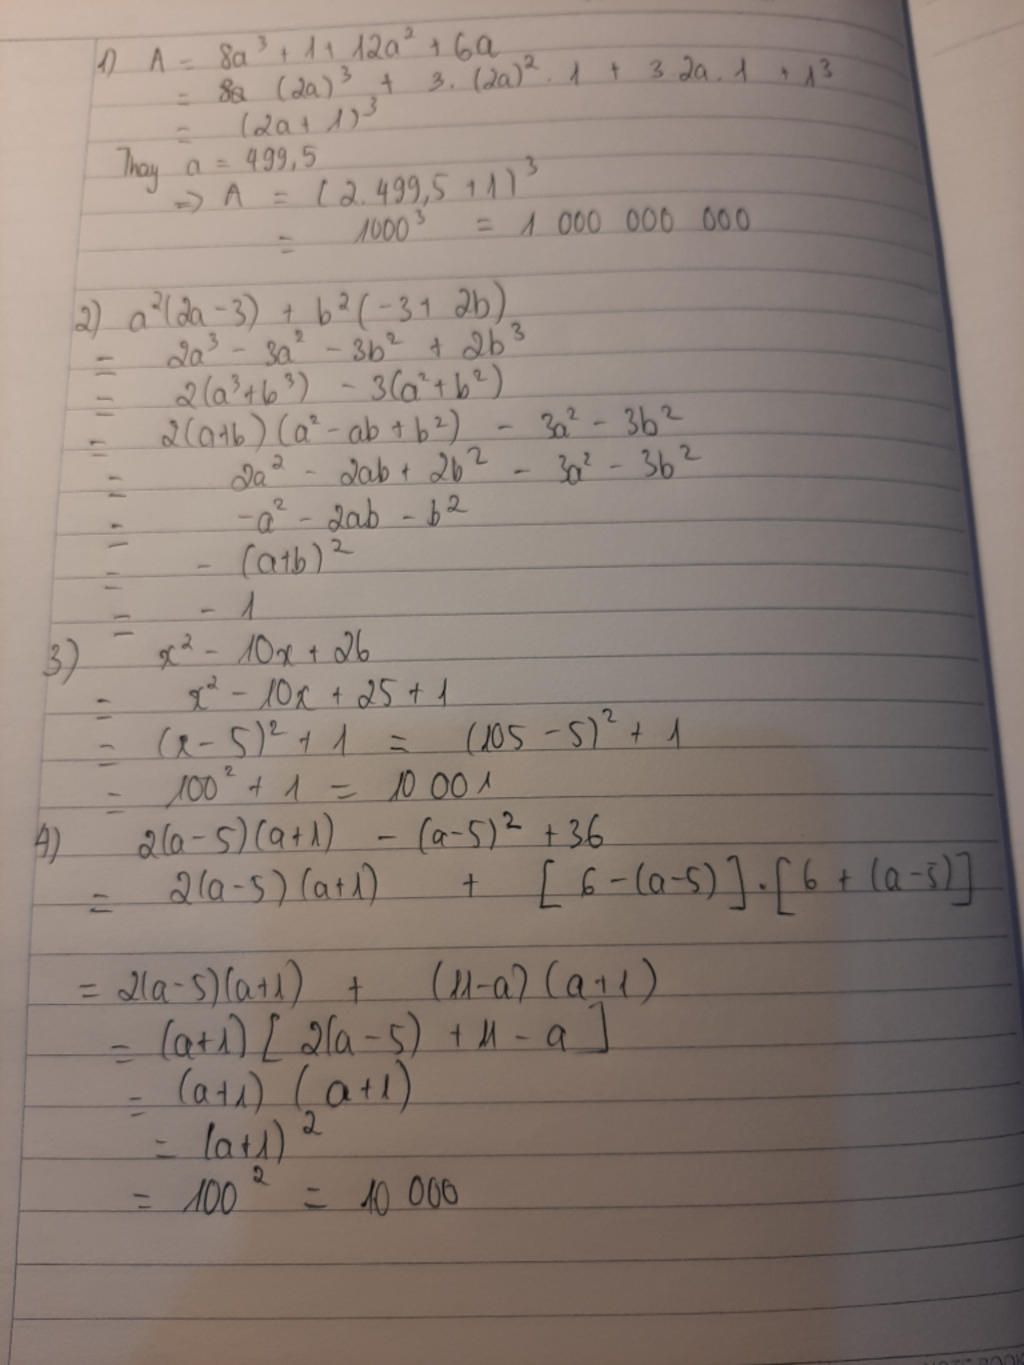 1) A = 8a³ + 1 + 12a² + 6a
= 8a (2a)³ + 3. (2a)². 1 + 3.2a.1 + 1³
= (2a+1)³
Thay a = 499,5
=> A = (2.499,5 + 1)³
= 1000³ = 1 000 000 000
2) a²(2a-3) + b²(-3+2b)
= 2a³ - 3a² - 3b² + 2b³
= 2(a³+b³) - 3(a²+b²)
= 2(a+b)(a²-ab+b²) - 3a² - 3b²
= 2a² - 2ab + 2b² - 3a² - 3b²
= -a² - 2ab - b²
= - (a+b)²
= - 1
3) x² - 10x + 26
= x² - 10x + 25 + 1
= (x-5)² + 1 = (105-5)² + 1
= 100² + 1 = 10 001
4) 2(a-5)(a+1) - (a-5)² + 36
= 2(a-5)(a+1) + [6-(a-5)].[6+(a-5)]
= 2(a-5)(a+1) + (11-a)(a+1)
= (a+1)[2(a-5) + 11 - a]
= (a+1)(a+1)
= (a+1)²
= 100² = 10 000